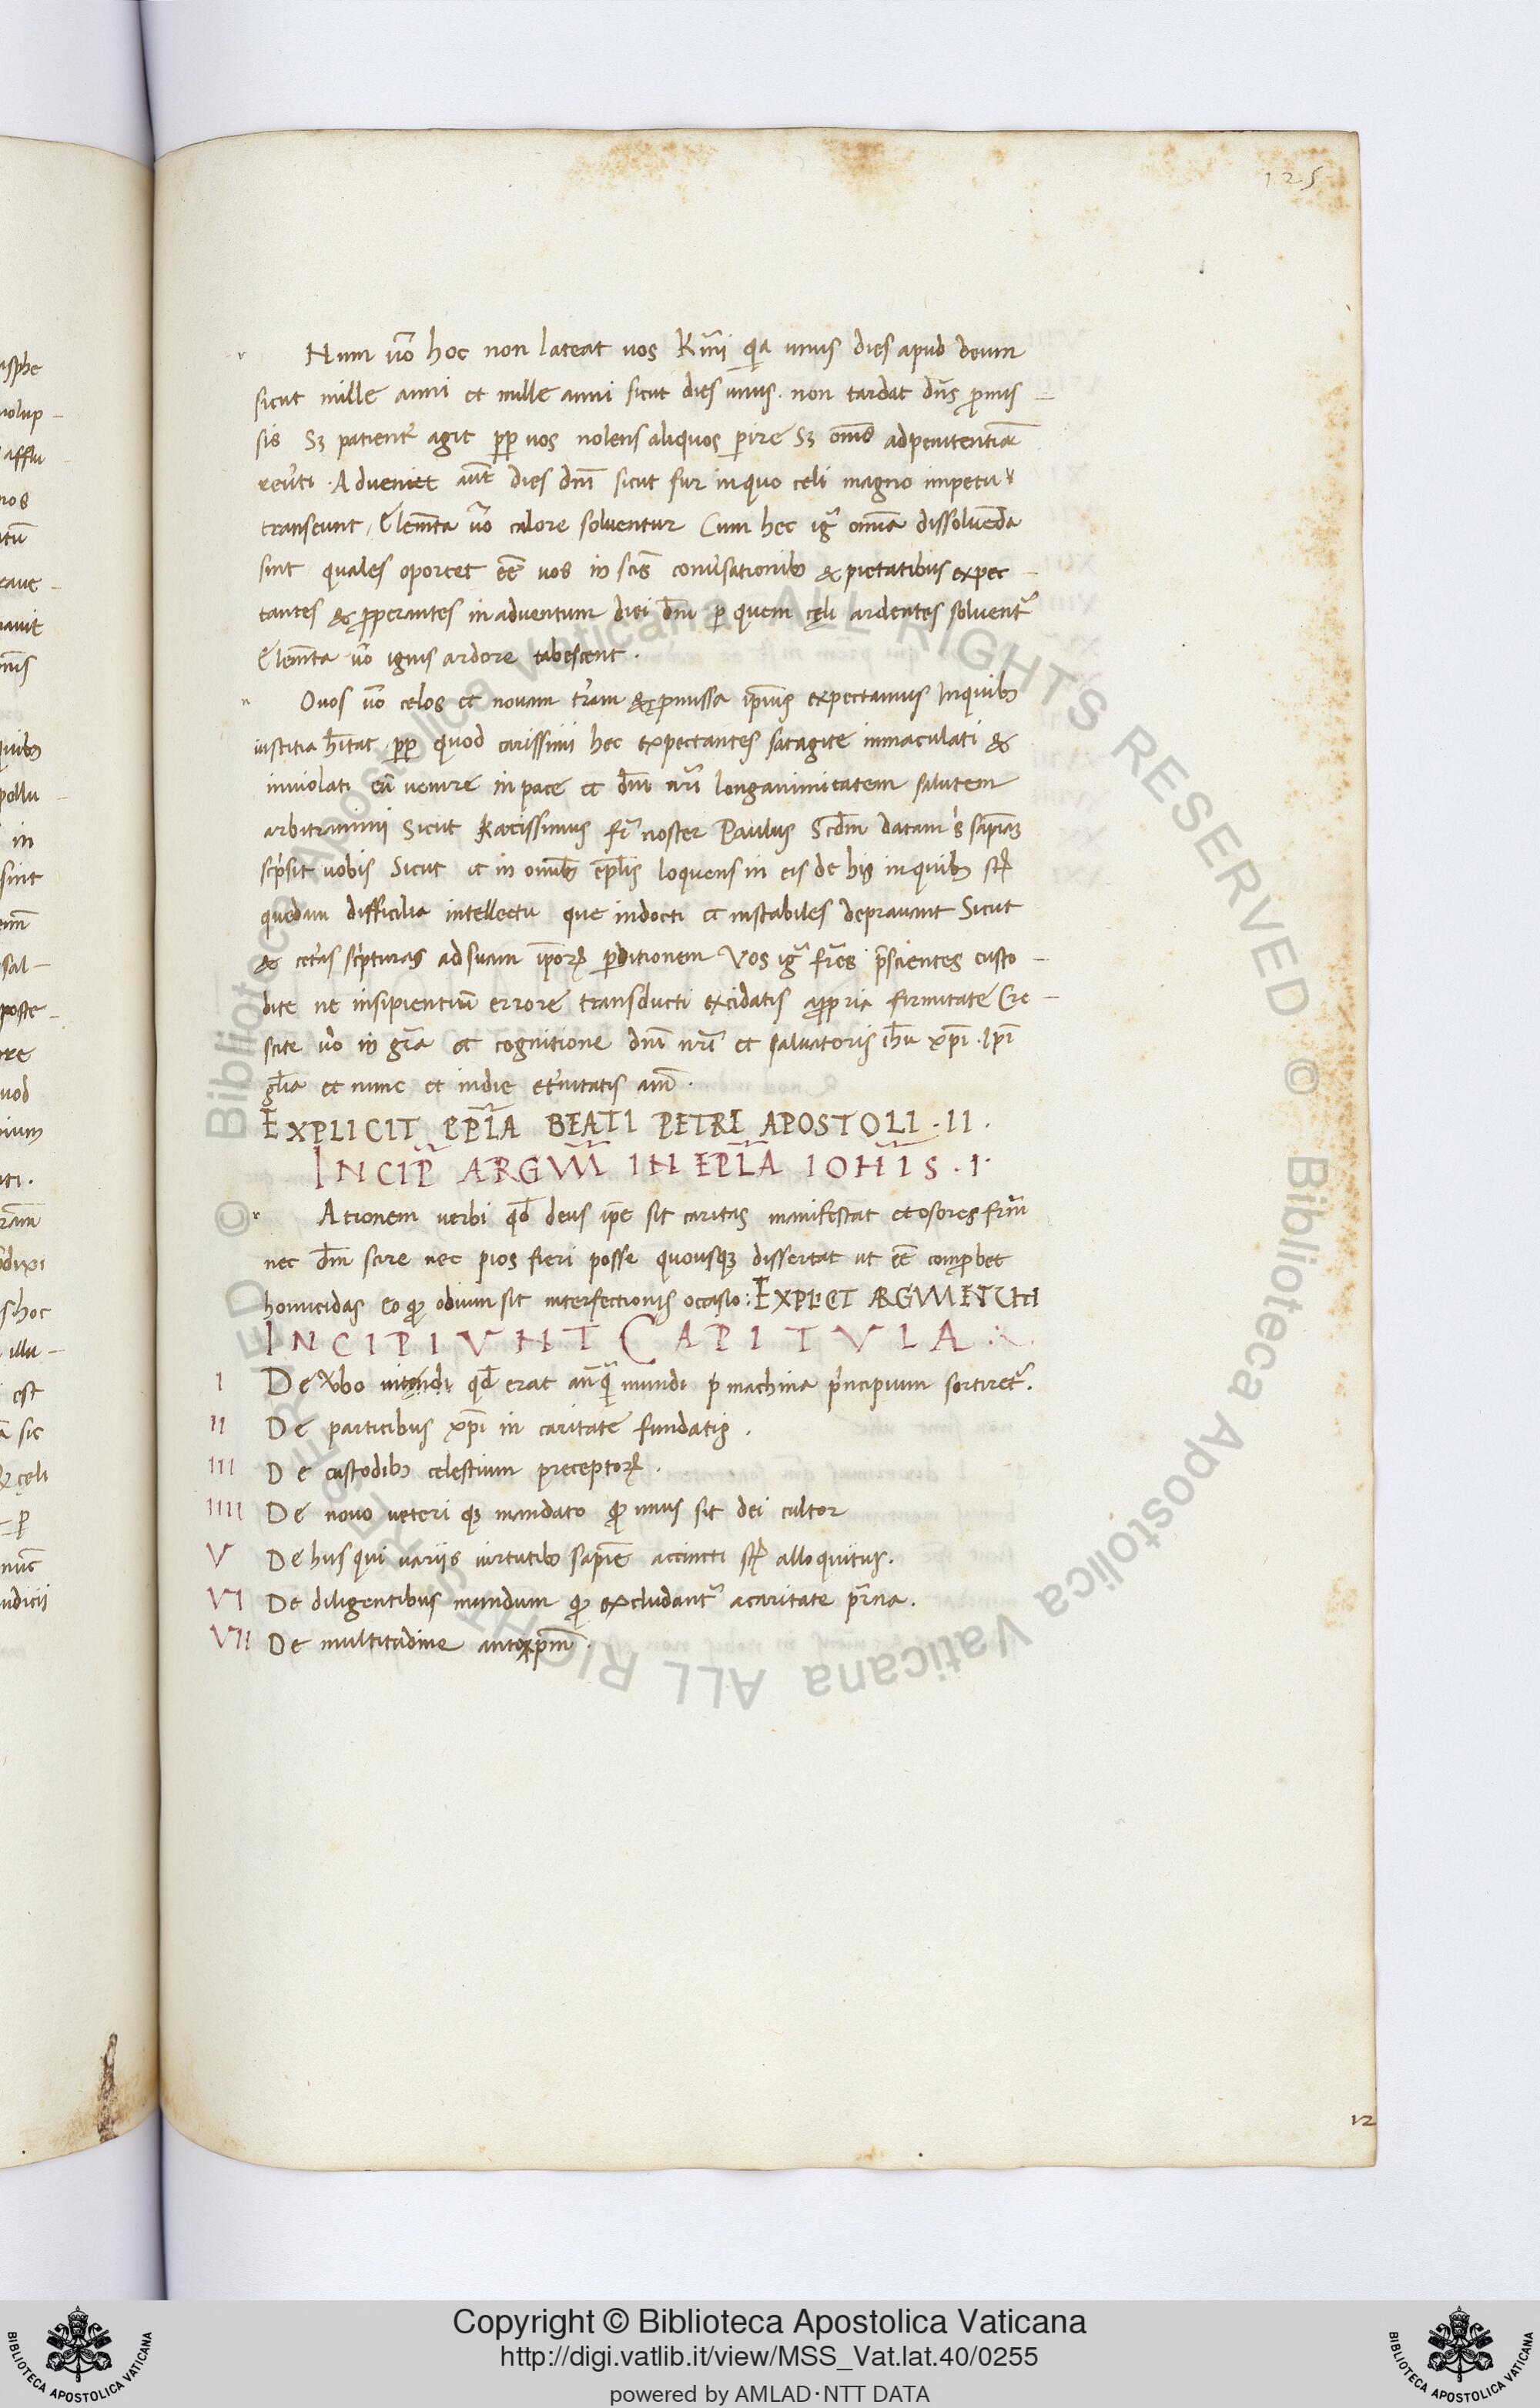 125
v Num u͞o hoc non lateat uos K͞mi qia unus dies apud deum
sicut mille anni et mille anni sicut dies unus. non tardat dn͞s ꝓmis -
sis Sꝫ patient͛ agit ꝓꝑ uos nolens aliquos ꝑire Sꝫ om͞s ad penitentia͞
reu͛ti . Adueniet au͞t dies dn͞i sicut fur in quo celi magno impetu
transeunt, Elem͞ta u͞o calore soluentur Cum hec ig͛ om͞ia dissoluenda
sint quales oportet e͞e͞ uos in sc͞is conu͛sationib; & pietatibus expec -
tantes & ꝓꝑerantes in aduentum diei dn͞i ꝑ quem cęli ardentes soluent͛
Elem͞ta u͞o ignis ardore tabescent .
n Ouos u͞o celos et nouam t͛ram & ꝓmissa ip͞ius expectamus In quib;
iustitia h͞itat . ꝓꝑ quod carissimi hec expectantes satagite inmaculati &
inuiolati ea͞ uenire in pace et dn͞i nr͞i longanimitatem salutem
arbitramini Sicut Karissimus fr͞ noster Paulus Scd͞m datam s͛ sap͞iaꝫ
sc͛psit uobis Sicut et in omib; ep͞lis loquens in eis de his in quib; st͞
quedam difficilia intellectu que indocti et instabiles deprauant Sicut
& cet͛as sc͛pturas ad suam ip͞oꝝ ꝑditionem Vos ig͛ fr͞es p͞scientes custo -
dite ne insipientiu͞ errore transducti excidatis a ꝓpria firmitate Cre -
scite u͞o in gr͞a et cognitione dn͞i nr͞i et saluatoris ih͞u xp͞i . Ip͞i
gl͞ia et nunc et in die et͛nitatis am͞ .
EXPLICIT EPL͞A BEATI PETRI APOSTOLI . II .
INCIP͞ ARGUM͞ IN EPL͞A IOH͞IS . I .
r Ationem uerbi qd͞ deus ip͞e sit caritas manifestat et osores fr͞m
nec d͞m scire nec pios fieri posse quousqꝫ dissertat ut e͞e͞ comꝓbet
homicidas Eo ꝙ odium sit interfectionis occasio : EXPLICT ARGUMETUM
INCIPIVNT CAPITVLA .
I De u͛bo qd͞ erat an͞q͛ mundi machina p͛ncipium sortiret͛ .
II De participibus xp͞i in caritate fundatis .
III De custodib; celestium preceptoꝝ .
IIII De nouo ueteri qꝫ mandato ꝙ unus sit dei cultor
V De hus qui uariis uirtutib; sap͞ie accincti st͞ alloquitur .
VI De diligentibus mundum ꝙ excludant͛ a caritate p͞rna .
VII De multitudine antexp͞m .
12
© Biblioteca Apostolica Vaticana ALL RIGHTS RESERVED © Biblioteca Apostolica Vaticana ALL RIGHTS RESERVED
Copyright © Biblioteca Apostolica Vaticana
http://digi.vatlib.it/view/MSS_Vat.lat.40/0255
powered by AMLAD·NTT DATA
BIBLIOTECA APOSTOLICA VATICANA
BIBLIOTECA APOSTOLICA VATICANA